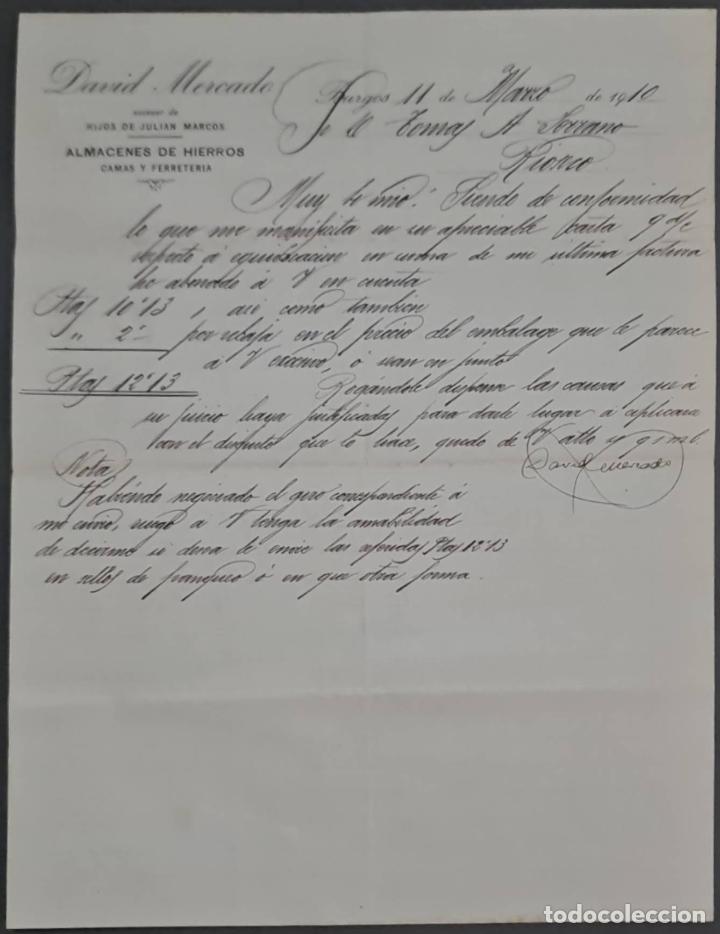 David Mercado
sucesor de
HIJOS DE JULIAN MARCOS
ALMACENES DE HIERROS
CAMAS Y FERRETERIA
Burgos 11 de Marzo de 1910
Sr. D. Tomas A Serrano
Rioseco
Muy Sr mio: Siendo de conformidad
lo que me manifiesta en su apreciable carta 9 d/c
respecto á equivocacion en suma de mi última factura
he abonado á V en cuenta
Ptas 10'13, asi como tambien
" 2'- por rebaja en el precio del embalage que le parece
á V excesivo, ó sean en junto
Ptas 12'13 Rogándole dispense las causas que á
su juicio haya justificadas para darle lugar á
con el disgusto que lo hace, quedo de V atto y q s m b.
David Mercado
Nota
Habiendo negociado el giro correspondiente á
mi envio, ruego á V tenga la amabilidad
de decirme si desea le envie las referidas Ptas 12'13
en sellos de franqueo ó en que otra forma.
todocoleccion.net